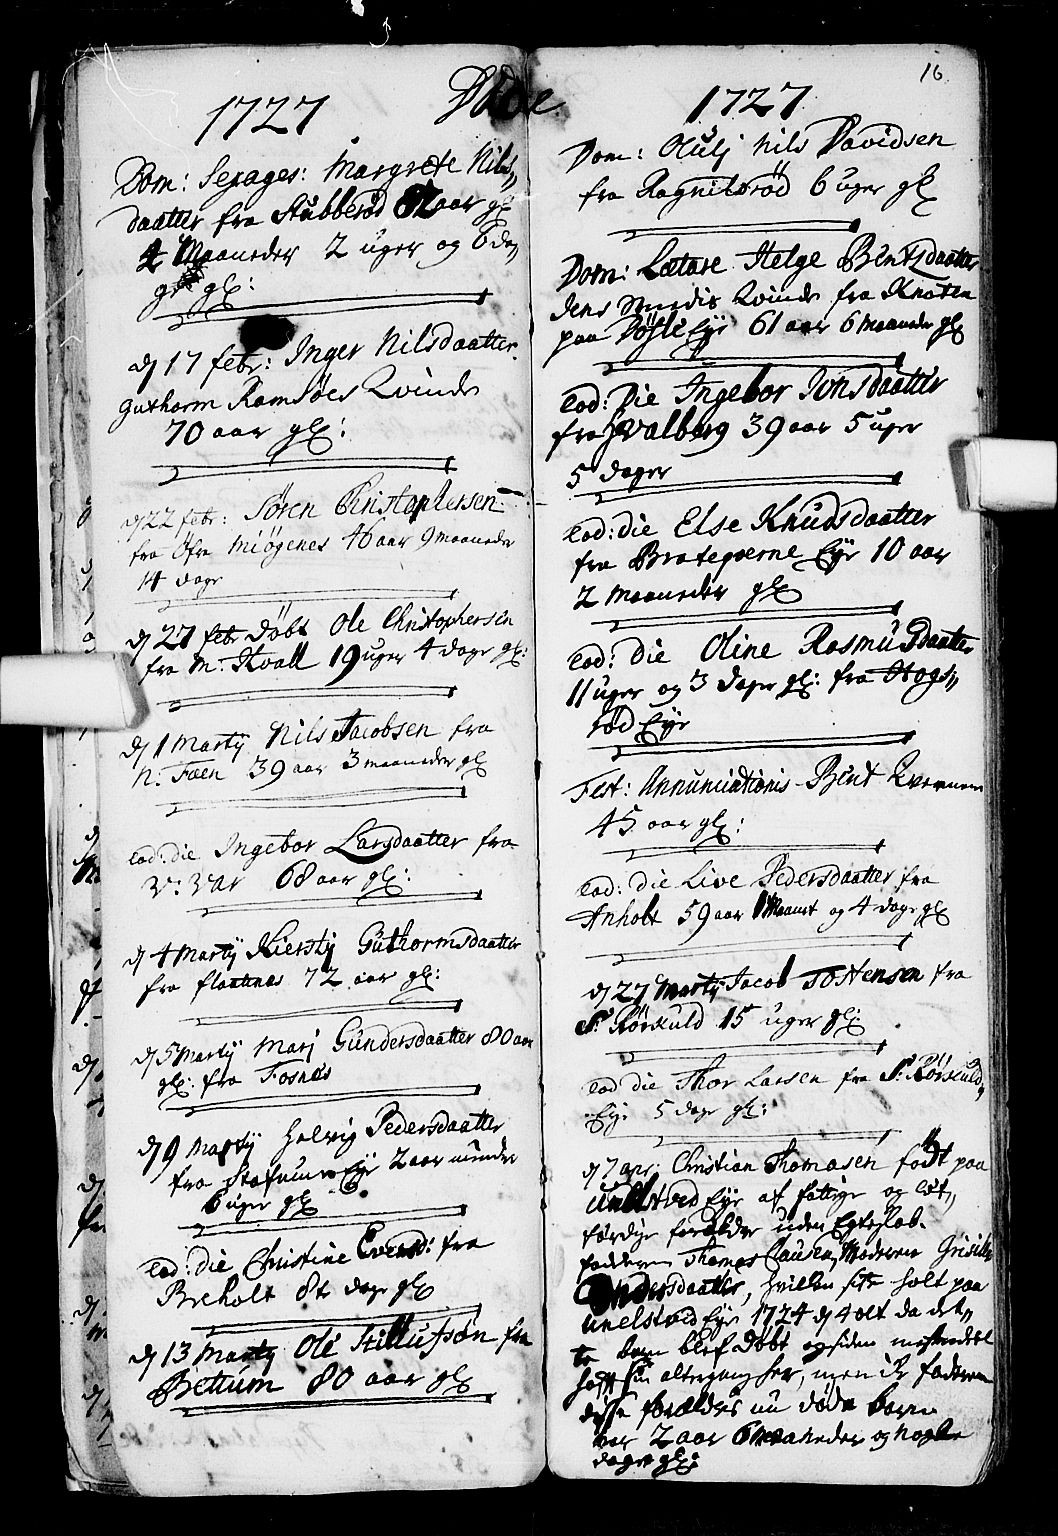 Døde
1727
Dom: Sexages: Margrete Nils„
daatter fra Stubberød 82 aar gl
4 Maaneder 2 uger og 6 da„
ge gl:
d 17 febr: Inger Nilsdaatter
Guthorm Ramsöes Qvinde
70 aar gl:
d 22 febr: Sören Christophersen
fra Öfre Miögenes 46 aar 9 maaneder
14 dage
d 27 febr döbt Ole Christophersen
fra M: Kvall 19 uger 4 dage gl:
d 1 Martij Nils Jacobsen fra
N: Foen 39 aar 3 maaneder gl
Eod: die Ingebor Larsdaatter fra
68 aar gl:
d 4 Martij Kiersty Guthormsdaatter
fra flaatnes 72 aar gl:
d 5 Martij Marj Gundersdaatter 80 aar
gl: fra Fosnes
d 9 Martij Helvig Pedersdaatter
fra Eje 2 aar mindre
6 uger gl
Eod: die Christine Everds: fra
Breholt 8te dage gl
d 13 Martij Ole Stillufsön fra
Bettum 80 aar gl
16
1727
Dom: Oculj Nils Davidsen
fra Ragnilsröd 6 uger gl
Dom: Lætare Helge Bentsdaatter
Jens Qvinde fra Knaten
paa Eje 61 aar 6 maaneder gl
Eod: Die Ingebor Jonsdaatter
fra Hvalberg 39 aar 5 uger
5 dager
Eod: die Else Knudsdaatter
fra Eje 10 aar
2 maaneder gl
Eod: die Oline Rasmusdaatter
11 uger og 3 dage gl: fra Hogs„
röd Eje
Fest: Annunciationis Bent Qvernem
45 aar gl:
Eod: die Live Pedersdaatter fra
Anholt 59 aar 1 Maanet og 4 dage gl
d 27 Martij Jacob Tostensen fra
S: Rörkuld 15 uger gl:
Eod die Thor Larsen fra S: Rörkuld„
Eje 5 dage gl:
d 7 apr: Christian Thomasen födt paa
Unelstved Eje af fattige og löt„
færdige forældre uden Egteskab.
faderen Thomas Clausen, Moderen Grisille
Andersdaatter, hvilken sitte holt paa
unelstvid Eje 1724 d 4 oct da det„
te barn blef döbt og siden
sin altergang her, men faderen
disse forældres nu döde barn
var 2 aar 6 maaneder og nogle
dage gl: